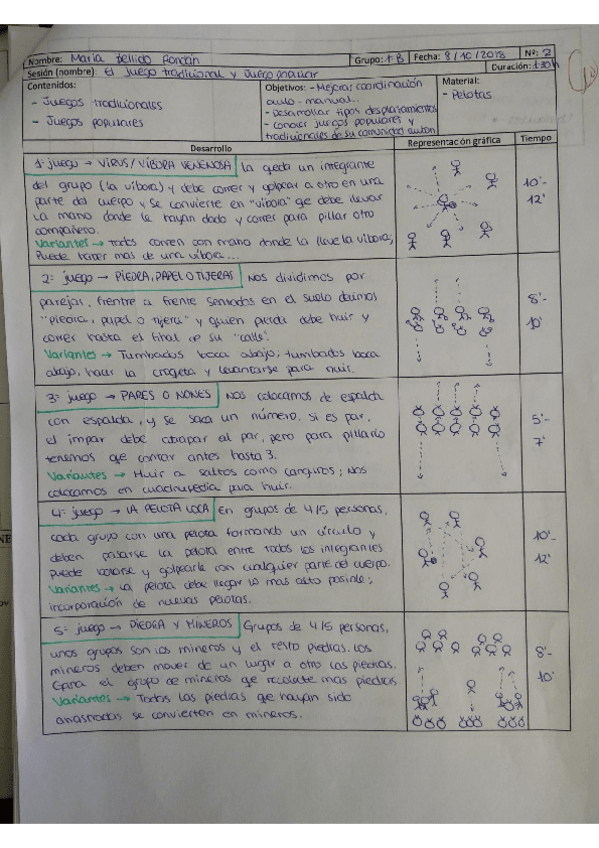 Nombre: María Bellido Rondán Grupo: 1ºB Fecha: 8/10/2018 Nº: 2
Sesión (nombre) El juego tradicional y juego popular Duración: 1:30h
Contenidos:
- Juegos tradicionales
- Juegos populares
Objetivos: - Mejorar coordinación
óculo-manual...
- Desarrollar tipos desplazamientos
- Conocer juegos populares y
tradicionales de su comunidad autón
Material:
- Pelotas
Desarrollo Representación gráfica Tiempo
1º juego → VIRUS/ VÍBORA VENENOSA La queda un integrante
del grupo (la víbora) y debe correr y golpear a otro en una
parte del cuerpo y se convierte en "víbora" qe debe llevar
la mano donde le hayan dado y correr para pillar otro
compañero.
Variantes → Todos corren con mano donde la lleve la víbora;
Puede haber mas de una víbora...
10'-
12'
2º juego → PIEDRA, PAPEL O TIJERAS Nos dividimos por
parejas, frente a frente sentados en el suelo decimos
"piedra, papel o tijera" y quien pierda debe huir y
correr hasta el final de su "calle".
Variantes → Tumbados boca abajo, tumbados boca
abajo, hacer la croqueta y levantarse para huir.
8'-
10'
3º juego → PARES O NONES Nos colocamos de espalda
con espalda, y se saca un número. si es par,
el impar debe atrapar al par, pero para pillarlo
tenemos que contar antes hasta 3.
Variantes → Huir a saltos como canguros; Nos
colocamos en cuadrupedia para huir.
5'-
7'
4º juego → LA PELOTA LOCA En grupos de 4/5 personas,
cada grupo con una pelota formando un círculo y
deben pasarse la pelota entre todos los integrantes
puede botarse y golpearla con cualquier parte del cuerpo.
Variantes → La pelota debe llegar lo mas alto posible;
incorporación de nuevas pelotas.
10'-
12'
5º juego → PIEDRA Y MINEROS Grupos de 4/5 personas,
unos grupos son los mineros y el resto piedras. Los
mineros deben mover de un lugar a otro las piedras.
Gana el grupo de mineros que recolecte mas piedras.
Variantes → Todas las piedras qe hayan sido
arrastradas se convierten en mineros.
8'-
10'